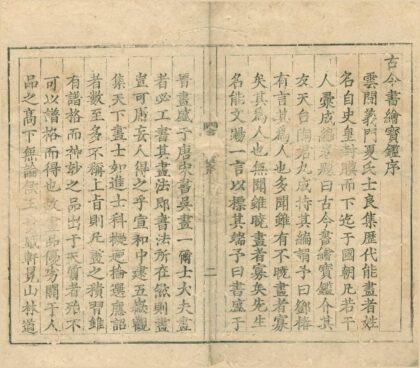 古今書繪寶鑑序
雲間義門夏氏士良集歷代能畫者姓
名自史皇封膜而下迄于國朝凡若干
人彙成編曰古今書繪寶鑑介其
友天台陶九成持其編謁予曰鄧椿
有言其為人也多聞雖有不曉畫者寡
矣其為人也無聞雖曉畫者寡矣先生
名能文賜一言以標其端予曰書盛于
二
晉畫盛于唐宋書與畫一爾士大夫畫
者必工書其畫法即書法所在然則畫
豈可庸妄人得之乎宣和中建五嶽觀
集天下畫士如進士科掄選應詔
者數至多不稱上旨則凡畫之積習雖
有譜格而神妙之品出于天質者殆不
可以譜格而得也故畫品優劣關于人
品之高下無論侯王戚軒冕山林道